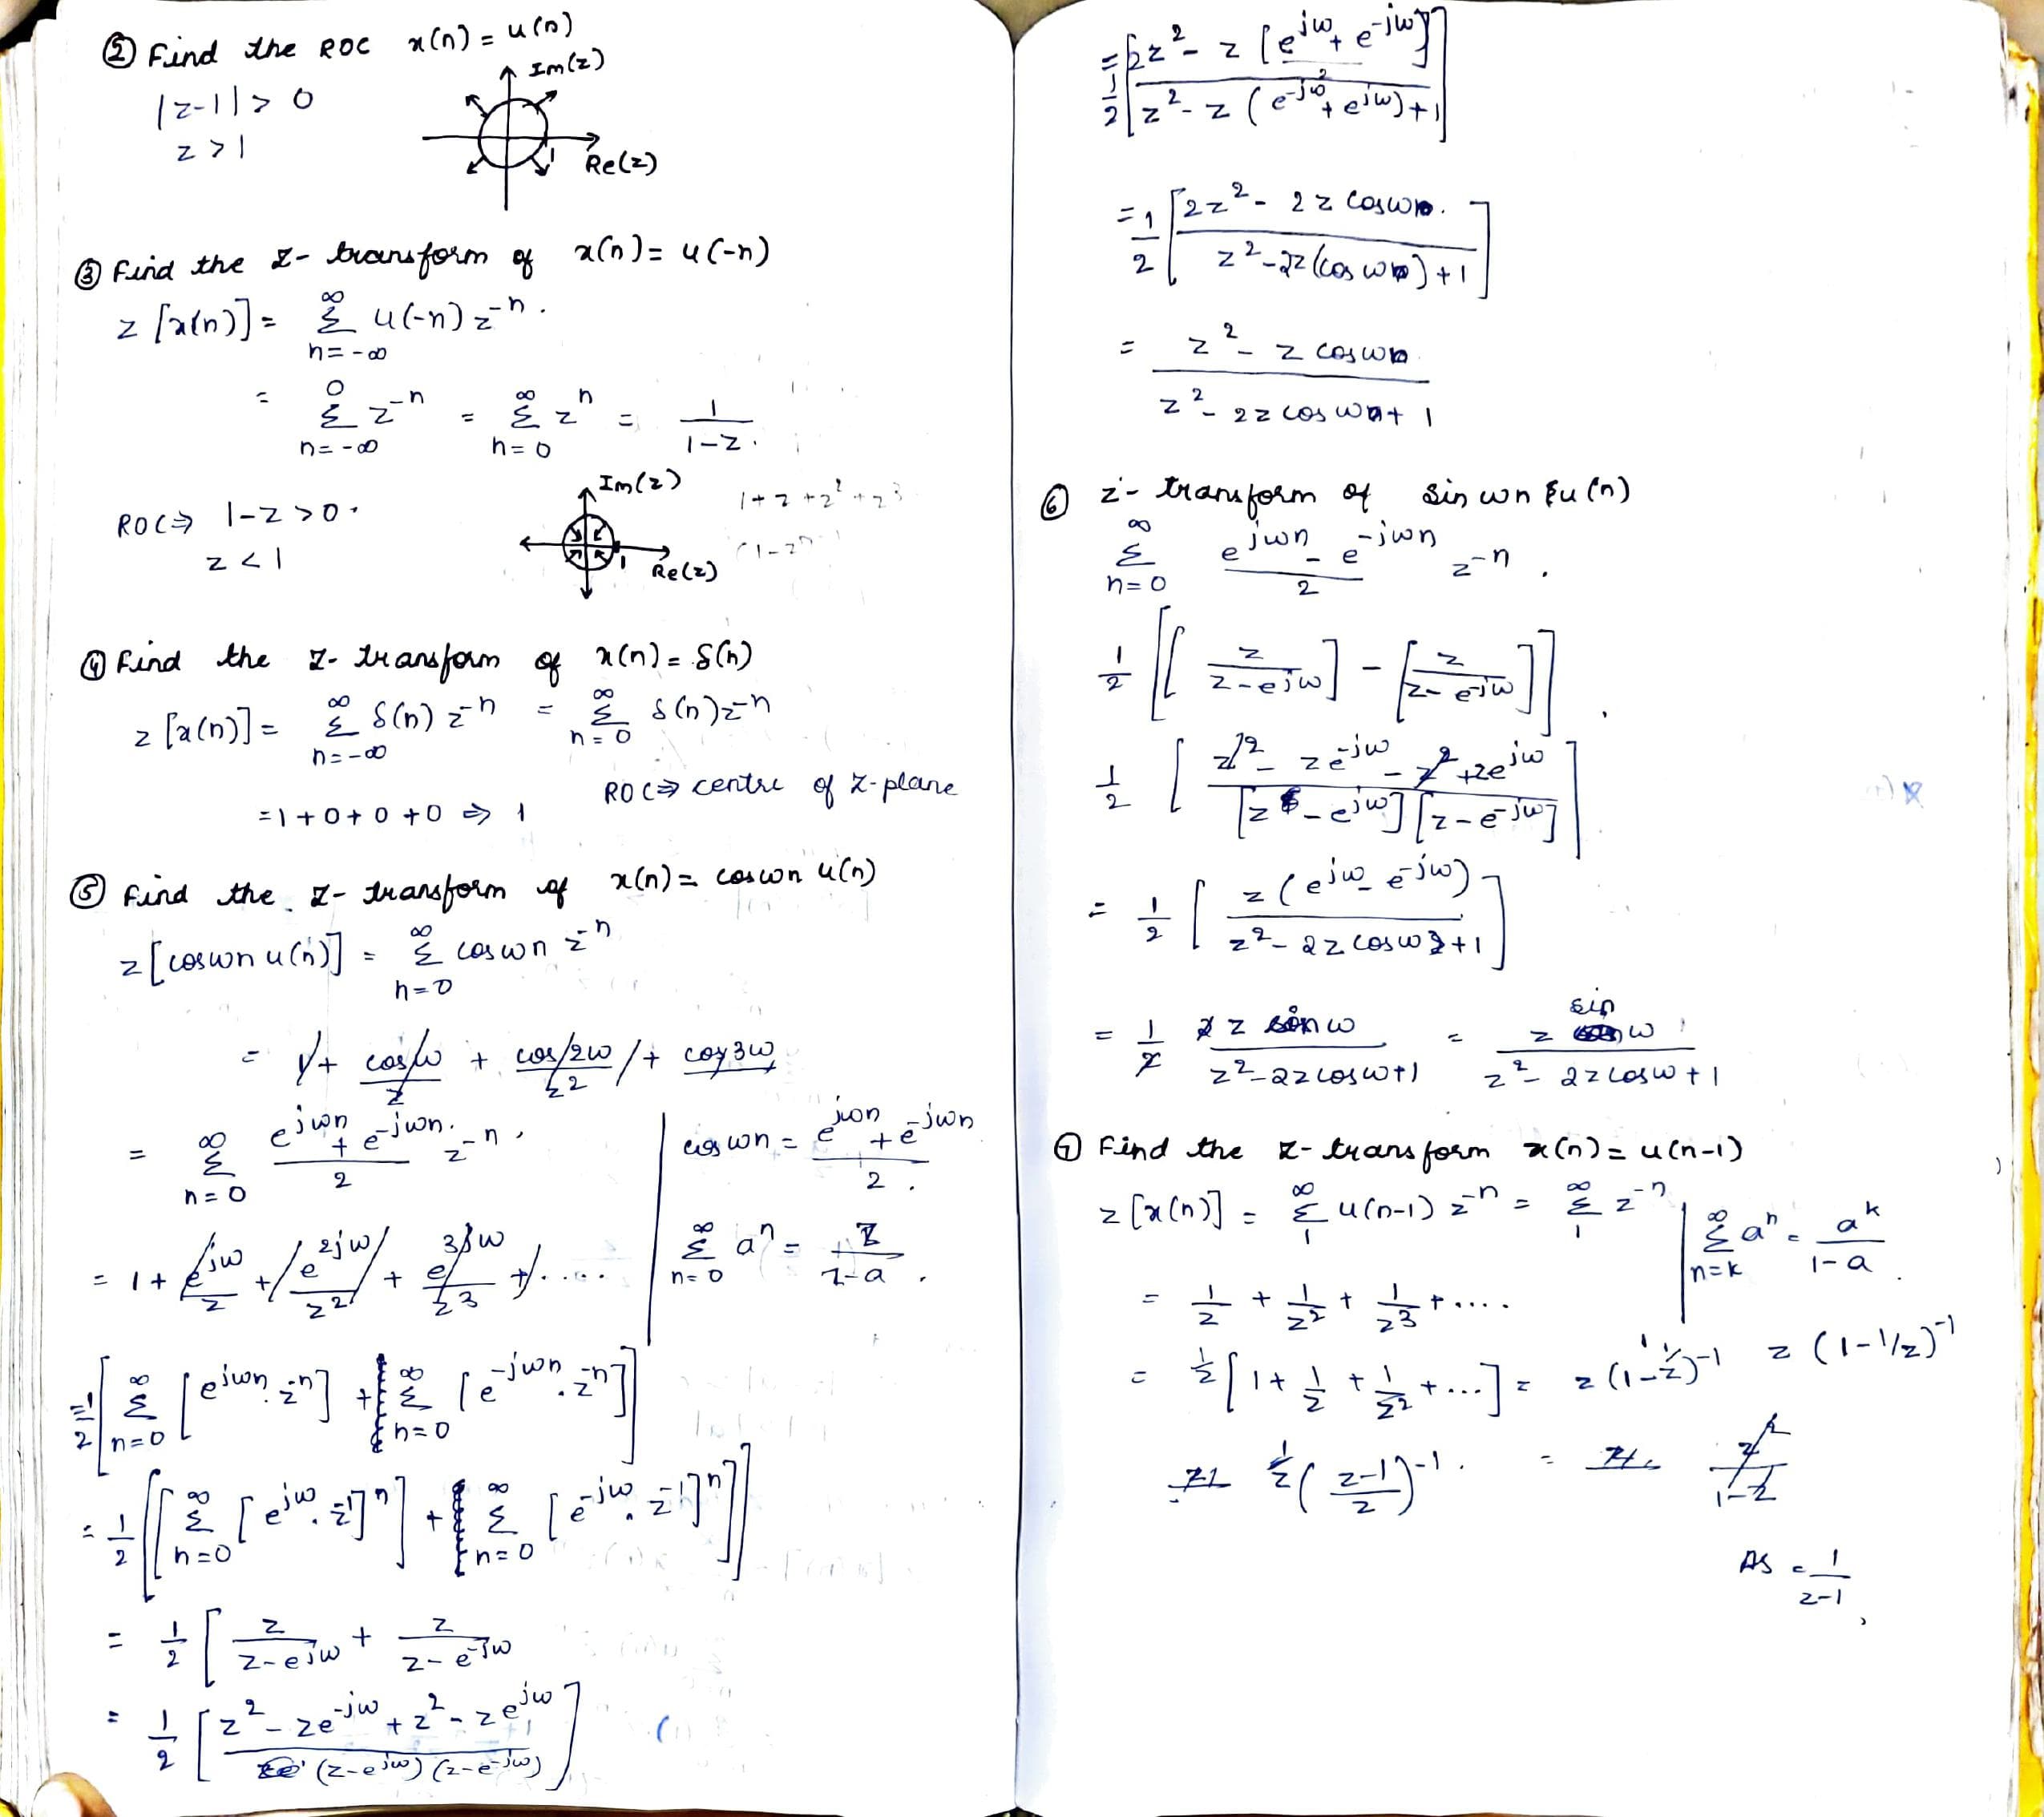 ② Find the ROC x(n) = u(n)
|z-1| > 0
z > 1
Im(z)
Re(z)
1
③ Find the Z- transform of x(n) = u(-n)
z [x(n)] = ∞ Σ n=-∞ u(-n) z^-n .
= 0 Σ n=-∞ z^-n = ∞ Σ n=0 z^n = 1/(1-z) .
ROC ⇒ 1-z > 0 .
z < 1
Im(z)
Re(z)
1
1 + z + z^2 + z^3
④ Find the Z- transform of x(n) = δ(n)
z [x(n)] = ∞ Σ n=-∞ δ(n) z^-n = ∞ Σ n=0 δ(n) z^-n
= 1 + 0 + 0 + 0 ⇒ 1
ROC ⇒ centre of Z-plane
⑤ Find the Z- transform of x(n) = cos wn u(n)
z [cos wn u(n)] = ∞ Σ n=0 cos wn z^-n
= 1 + cos w/z + cos 2w/z^2 + cos 3w
= ∞ Σ n=0 (e^jwn + e^-jwn)/2 . z^-n ,
cos wn = (e^jwn + e^-jwn)/2 .
= 1 + e^jw/z + e^2jw/z^2 + e^3jw/z^3 + ....
∞ Σ n=0 a^n = z/(z-a) .
= 1/2 [ ∞ Σ n=0 [e^jwn . z^-n] + ∞ Σ n=0 [e^-jwn . z^-n] ]
= 1/2 [[ ∞ Σ n=0 [e^jw . z^-1]^n ] + ∞ Σ n=0 [e^-jw . z^-1]^n ]]
= 1/2 [ z/(z-e^jw) + z/(z-e^-jw)
= 1/2 [ (z^2 - ze^-jw + z^2 - ze^jw)/((z-e^jw) (z-e^-jw)) ]
= 1/2 [ (2z^2 - z [e^jw + e^-jw])/(z^2 - z (e^-jw + e^jw) + 1) ]
= 1/2 [ (2z^2 - 2z cos w)/(z^2 - 2z (cos w) + 1) ]
= (z^2 - z cos w)/(z^2 - 2z cos w + 1)
⑥ z- transform of sin wn u(n)
∞ Σ n=0 (e^jwn - e^-jwn)/2 z^-n .
1/2 [[ z/(z-e^jw) ] - [ z/(z-e^-jw) ]] .
1/2 [ (z^2 - ze^-jw - z^2 + ze^jw)/([z - e^jw] [z - e^-jw]) ]
= 1/2 [ z (e^jw - e^-jw)/(z^2 - 2z cos w + 1) ]
= 1/2 2 z sin w/(z^2 - 2z cos w + 1) = z sin w/(z^2 - 2z cos w + 1)
⑦ Find the z- transform x(n) = u(n-1)
z [x(n)] = ∞ Σ 1 u(n-1) z^-n = ∞ Σ 1 z^-n
∞ Σ n=k a^n = a^k/(1-a) .
= 1/z + 1/z^2 + 1/z^3 + ....
= 1/z [ 1 + 1/z + 1/z^2 + ... ] = z (1 - 1/z)^-1 z (1 - 1/z)^-1
1/z ( (z-1)/z )^-1 . =
AS = 1/(z-1) ,